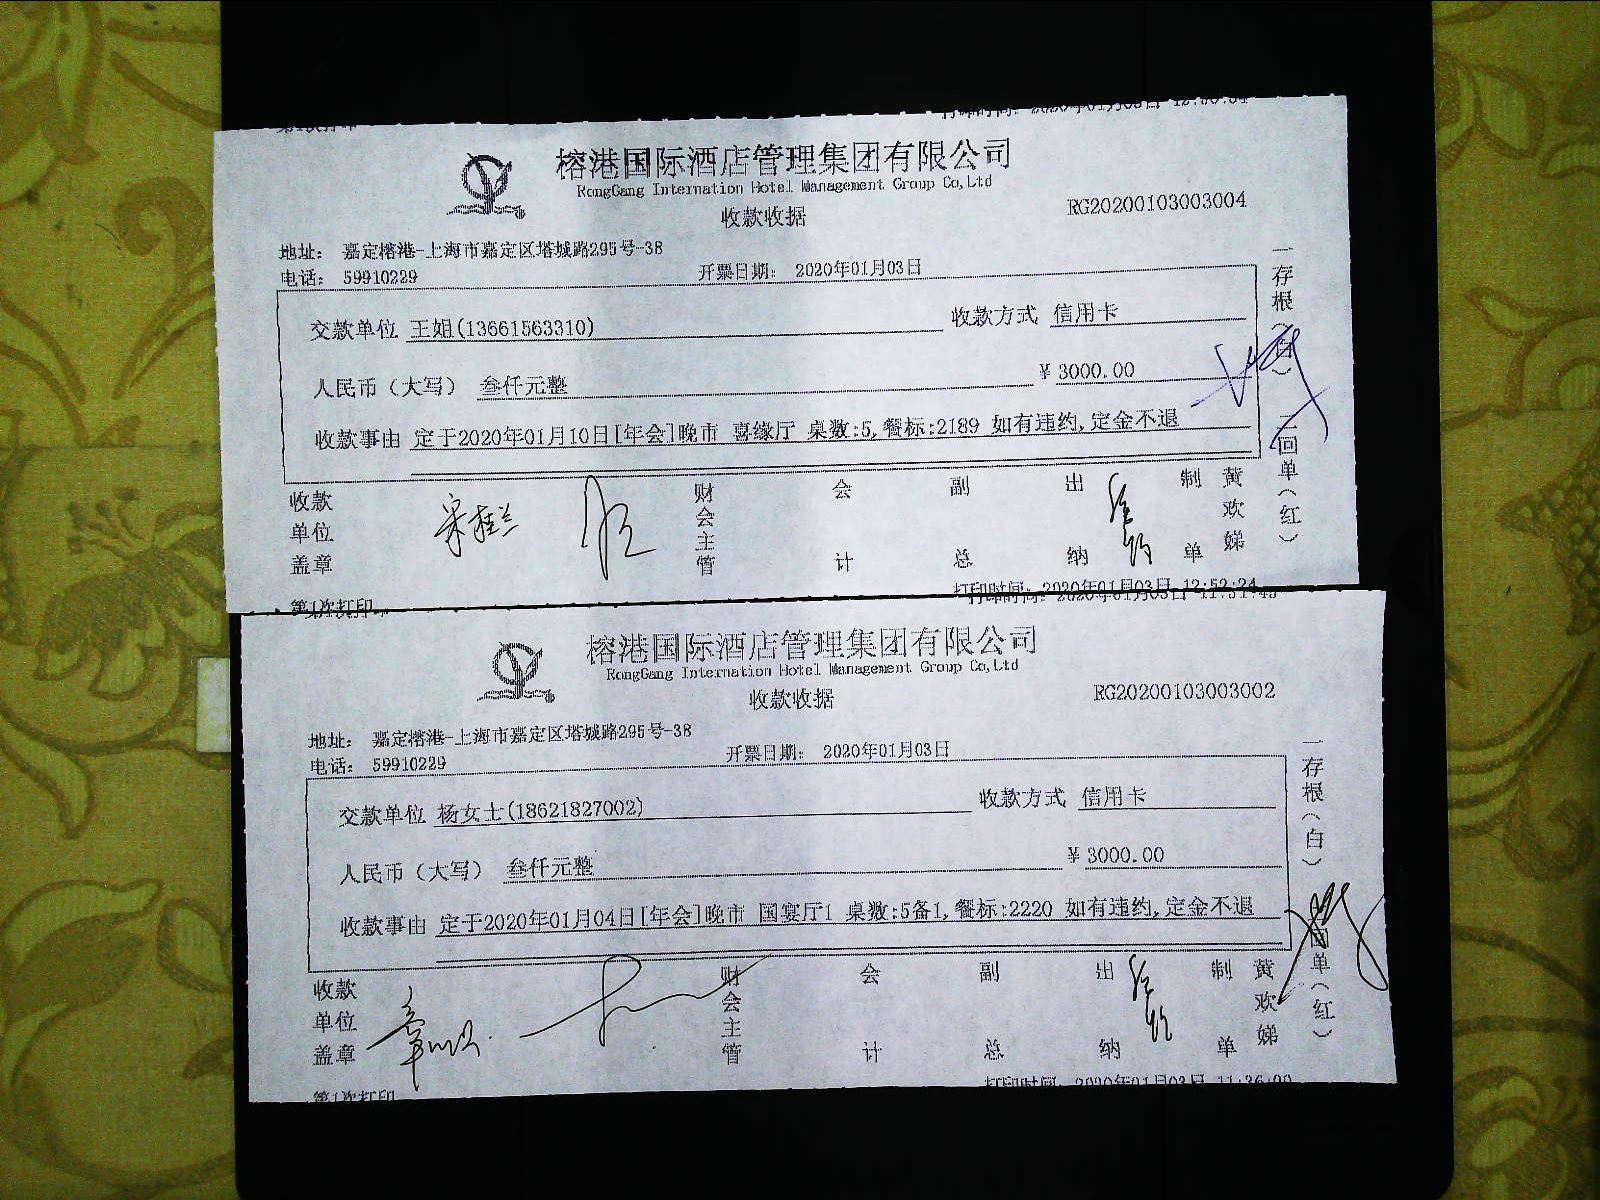 榕港国际酒店管理集团有限公司
RongGang Internation Hotel Management Group Co,Ltd
收款收据
RG20200103003004
地址： 嘉定榕港-上海市嘉定区塔城路295号-38
电话： 59910229
开票日期： 2020年01月03日
交款单位 王姐(13661563310)
收款方式 信用卡
人民币（大写） 叁仟元整
¥ 3000.00
收款事由 定于2020年01月10日[年会]晚市 喜缘厅 桌数:5,餐标:2189 如有违约,定金不退
一存根（白） 二回单（红）
收款单位盖章
宋桂兰
财会主管
会计
副总
出纳
制单
黄欢娣
第1次打印
打印时间：2020年01月03日 12:52:24
榕港国际酒店管理集团有限公司
RongGang Internation Hotel Management Group Co,Ltd
收款收据
RG20200103003002
地址： 嘉定榕港-上海市嘉定区塔城路295号-38
电话： 59910229
开票日期： 2020年01月03日
交款单位 杨女士(18621827002)
收款方式 信用卡
人民币（大写） 叁仟元整
¥ 3000.00
收款事由 定于2020年01月04日[年会]晚市 国宴厅1 桌数:5备1,餐标:2220 如有违约,定金不退
一存根（白） 回单（红）
收款单位盖章
财会主管
会计
副总
出纳
制单
黄欢娣
第1次打印
打印时间：2020年01月03日 11:36:00